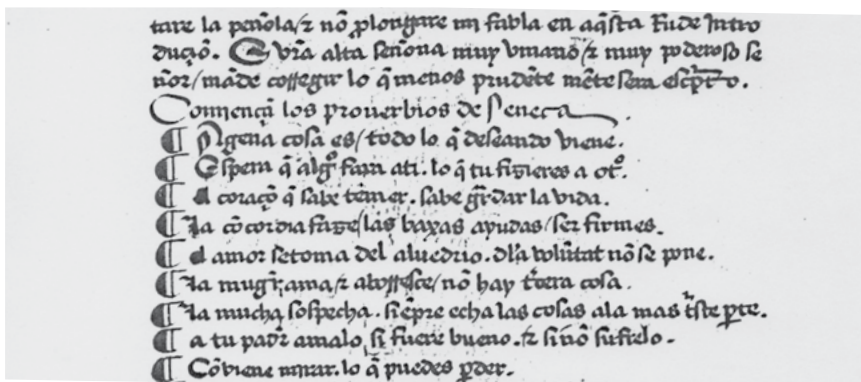 tare la peñola / ⁊ nõ ꝓlongare mi fabla en aq̃sta Rude Intro
duçiõ. E vr̃a alta señoria muy vmano / ⁊ muy poderoso se
ñor / mãde corregir lo q̃ menos prudẽte mẽte sera escp̃to.
Comiençã los prouerbios de seneca
¶ Agena cosa es / todo lo q̃ deseando viene.
¶ Espera q̃ algº fara ati. lo q̃ tu fizieres a otº.
¶ El coraçõ q̃ sabe temer. sabe gr̃dar la vida.
¶ la cõcordia faze / las baxas ayudas / ser firmes.
¶ El amor setoma del aluedrio. dla volũtat nõ se pone.
¶ la muger, ama / ⁊ aborresçe / nõ hay t̃cera cosa.
¶ la mucha sospecha. siẽpre echa las cosas ala mas t̃ste ꝑte.
¶ a tu padr̃ amalo, si fuere bueno. ⁊ sinõ sufrelo.
¶ Cõviene mirar. lo q̃ puedes ꝑder.